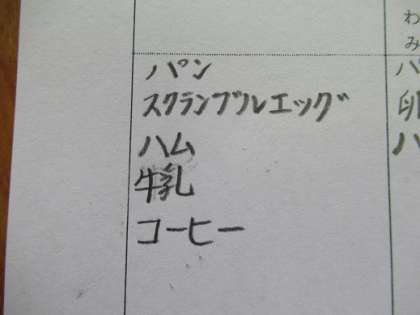 パン
スクランブルエッグ
ハム
牛乳
コーヒー
わ
み
パ
卵
ハ